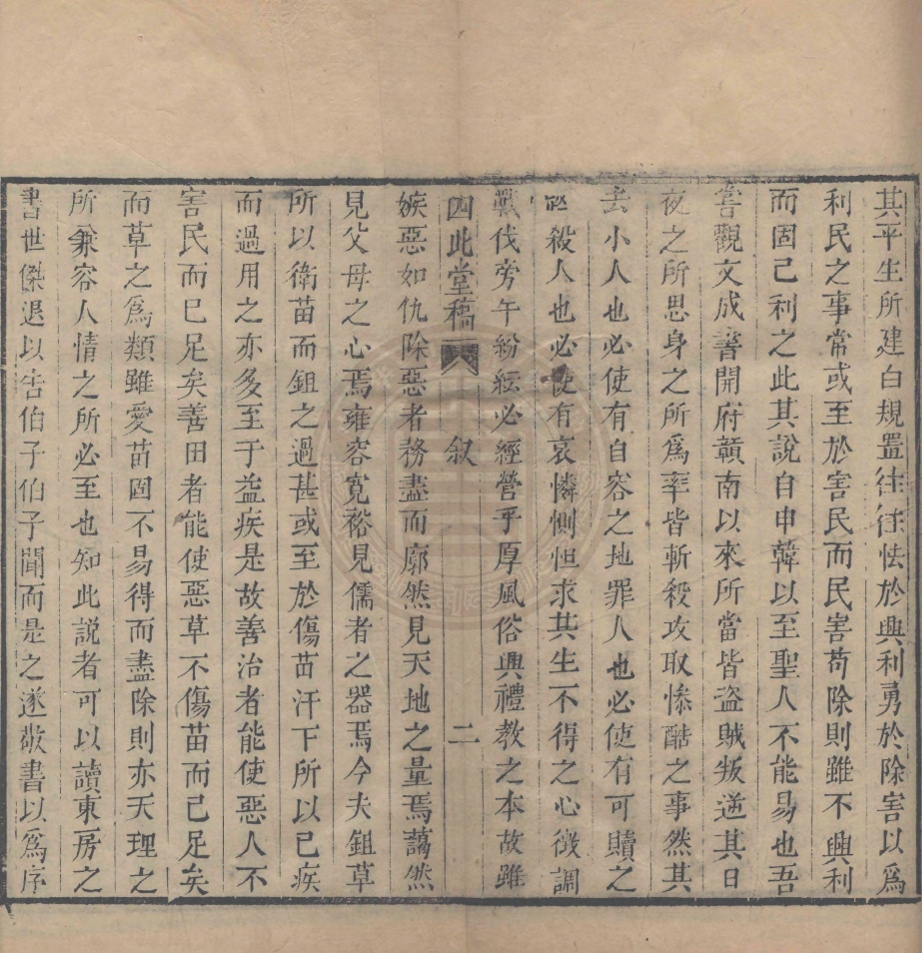 其平生所建白規畫往往怯於興利勇於除害以爲
利民之事常或至於害民而民害苟除則雖不興利
而固已利之此其說自申韓以至聖人不能易也吾
嘗觀文成壽開府贛南以來所當皆盜賊叛逆其日
夜之所思身之所爲率皆斬殺攻取慘酷之事然其
去小人也必使有自容之地罪人也必使有可贖之
殺人也必使有哀憐惻怛求其生不得之心徵調
戰伐旁午紛紜必經營乎厚風俗興禮教之本故雖
四此堂稿 叙 二
嫉惡如仇除惡者務盡而廓然見天地之量焉藹然
見父母之心焉雍容寬裕見儒者之器焉今夫鉏草
所以衛苗而鉏之過甚或至於傷苗汗下所以已疾
而過用之亦多至于益疾是故善治者能使惡人不
害民而已足矣善田者能使惡草不傷苗而已足矣
而草之爲類雖愛苗固不易得而盡除則亦天理之
所兼容人情之所必至也知此説者可以讀東房之
書世傑退以告伯子伯子聞而是之遂敬書以爲序